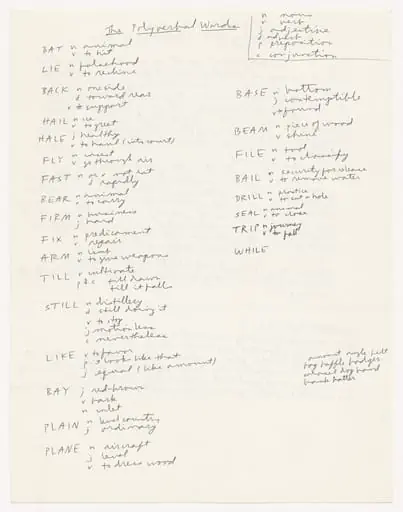 The Polyverbal Words
n noun
v verb
j adjective
d adverb
p preposition
c conjunction
BAT n animal
v to hit
LIE n falsehood
v to recline
BACK n one side
d toward rear
v to support
HAIL n ice
v to greet
HALE j healthy
v to haul (into court)
FLY n insect
v go through air
FAST n or v not eat
d rapidly
BEAR n animal
v to carry
FIRM n business
j hard
FIX n predicament
v repair
ARM n limb
v to give weapons
TILL v cultivate
p & c till dawn
till it falls
STILL n distillery
d still doing it
v to stop
j motionless
c nevertheless
LIKE v to favor
p looks like that
j equal (like amount)
BAY j red-brown
v bark
n inlet
PLAIN n level country
j ordinary
PLANE n aircraft
j level
v to dress wood
BASE n bottom
j contemptible
v to found
BEAM n piece of wood
v shine
FILE n tool
v to classify
BAIL n security for release
v to remove water
DRILL n practice
v to cut a hole
SEAL n animal
v to close
TRIP n journey
v to fall
WHILE
hawk hatter